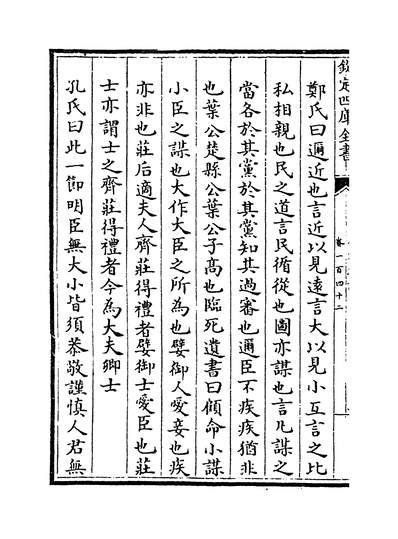 欽定四庫全書
卷一百四十二
鄭氏曰邇近也言近以見遠言大以見小互言之比
私相親也民之道言民循從也圖亦謀也言凡謀之
當各於其黨於其黨知其過審也邇臣不疾疾猶非
也葉公楚縣公葉公子髙也臨死遺書曰顧命小謀
小臣之謀也大作大臣之所為也嬖御人愛妾也疾
亦非也莊后適夫人齊莊得禮者嬖御士愛臣也莊
士亦謂士之齊莊得禮者今為大夫卿士
孔氏曰此一節明臣無大小皆須恭敬謹慎人君無